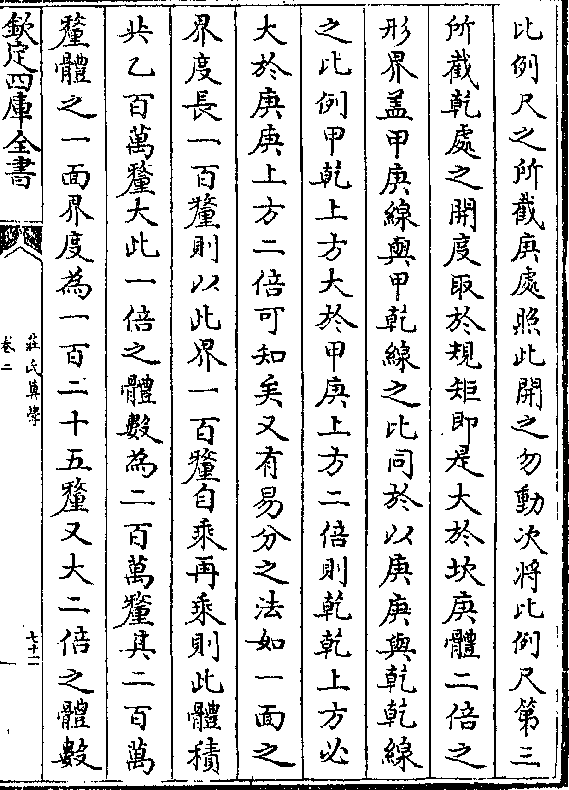 比例尺之所截庚處照此開之勿動次將比例尺第三
所截乾處之開度取於規矩即是大於坎庚體二倍之
形界盖甲庚線與甲乾線之比同於以庚庚與乾乾線
之比例甲乾上方大於甲庚上方二倍則乾乾上方必
大於庚庚上方二倍可知矣又有易分之法如一面之
界度長一百釐則以此界一百釐自乘再乘則此體積
共乙百萬釐大此一倍之體數為二百萬釐其二百萬
釐體之一面界度為一百二十五釐又大二倍之體數
欽定四庫全書
莊氏算學
卷二
七十一